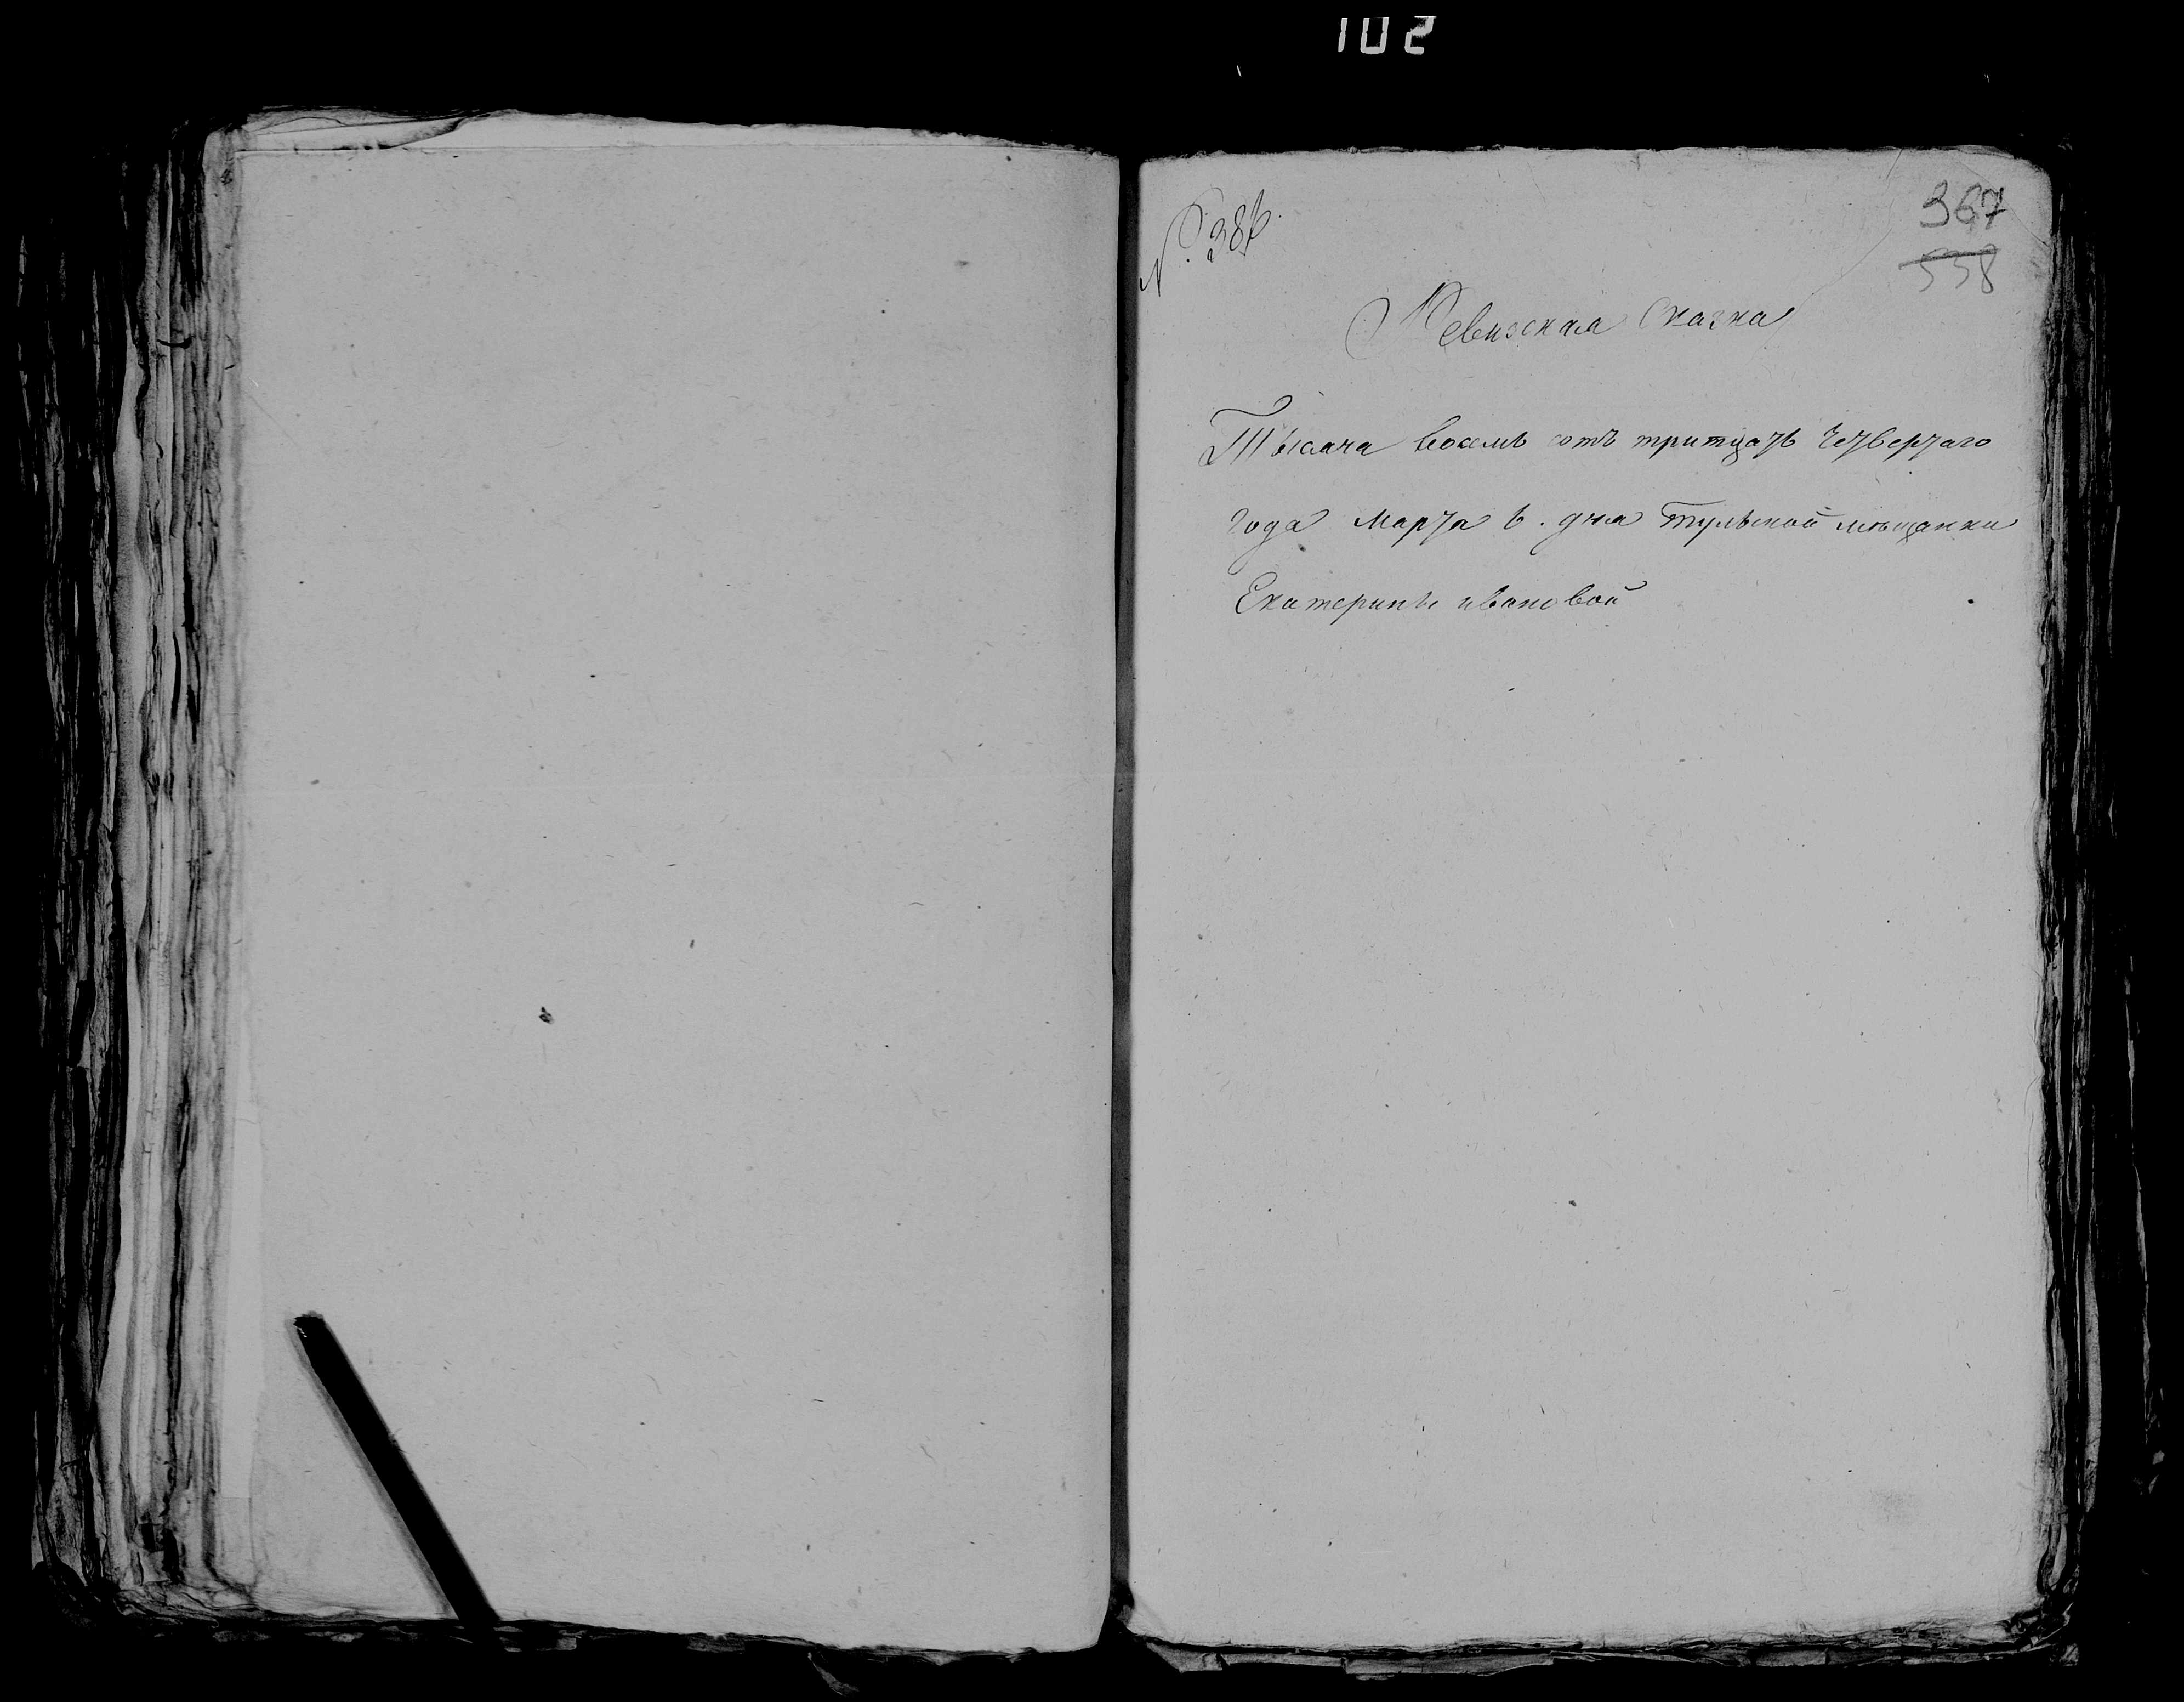 102
№ 386.
367
558
Ревизская Сказка
Тысяча восемь сотъ тритцать четвертаго
года марта 6. дня Тульской мѣщанки
Екатерины ивановой